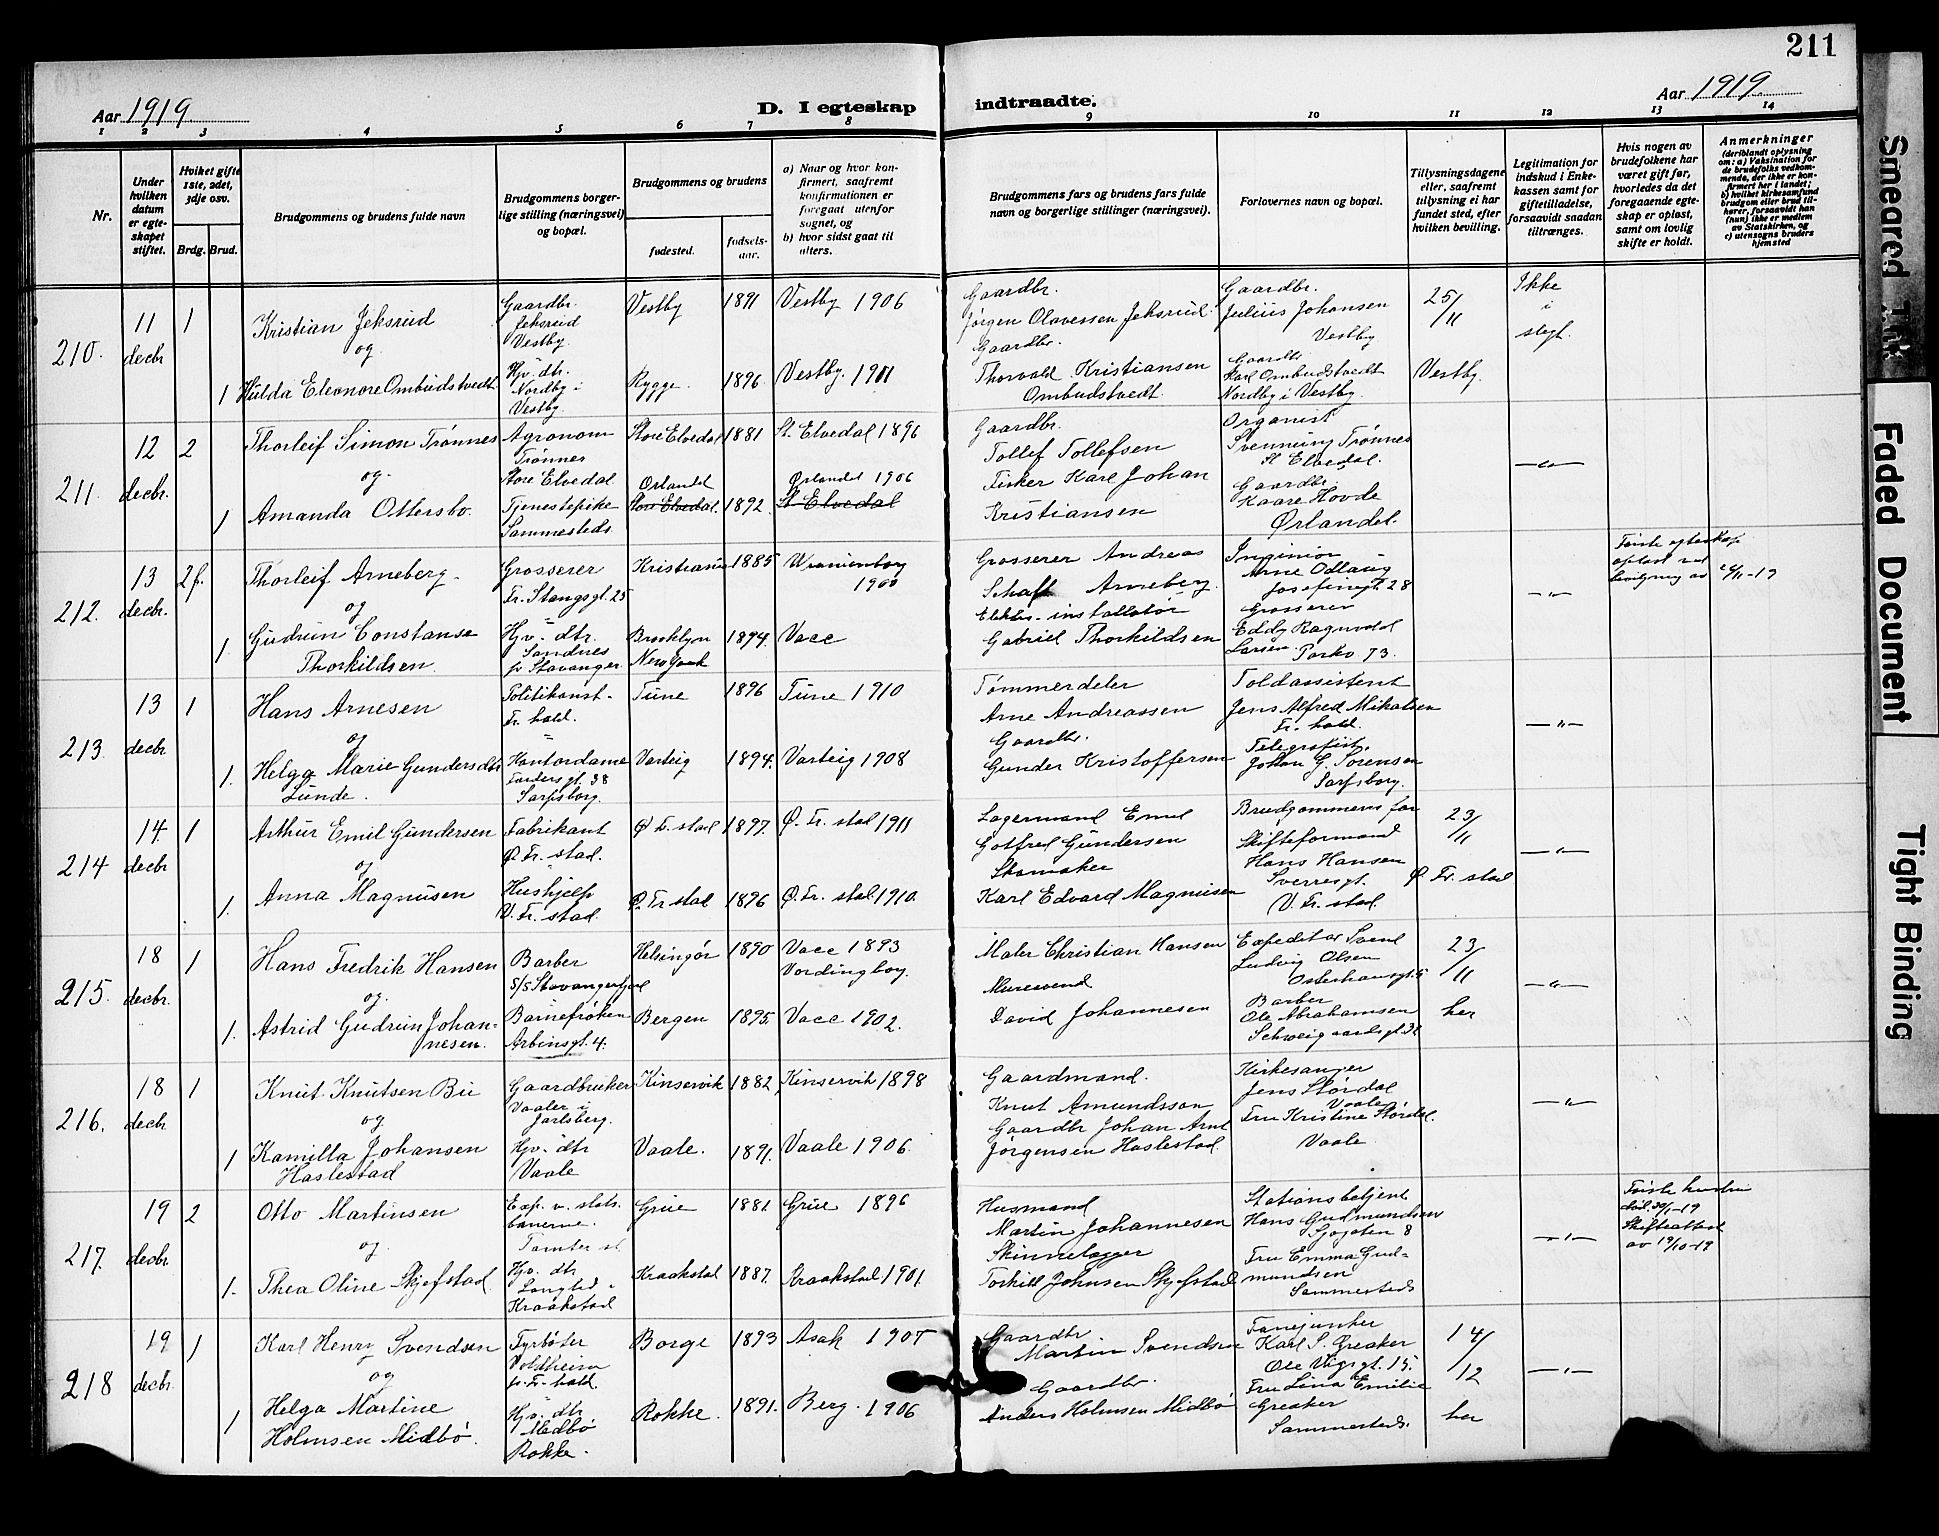 211
Aar 1919
D. I egteskap indtraadte.
Aar 1919
1 2 3 4 5 6 7 8 9 10 11 12 13 14
Nr.
Under hvilken datum er egteskapet stiftet.
Hvilket gifte 1ste, 2det, 3dje osv.
Brdg. Brud.
Brudgommens og brudens fulde navn
Brudgommens borgerlige stilling (næringsvei) og bopæl.
Brudgommens og brudens
fødested. fødselsaar.
a) Naar og hvor konfirmert, saafremt konfirmationen er foregaat utenfor sognet, og
b) hvor sidst gaat til alters.
Brudgommens fars og brudens fars fulde navn og borgerlige stillinger (næringsvei).
Forlovernes navn og bopæl.
Tillysningsdagene eller, saafremt tillysning ei har fundet sted, efter hvilken bevilling.
Legitimation for indskud i Enkekassen samt for giftetilladelse, forsaavidt saadan tiltrænges.
Hvis nogen av brudefolkene har været gift før, hvorledes da det foregaaende egteskap er opløst, samt om lovlig skifte er holdt.
Anmerkninger
(deriblandt oplysning om: a) Vaksination for de brudefolks vedkommende, der ikke er konfirmert her i landet; b) hvilket kirkesamfund brudgom eller brud tilhører, forsaavidt han (hun) ikke er medlem av Statskirken, og c) utensogns bruders hjemsted
210. 11 decbr 1
Kristian Jeksrud
og
1 Hulda Eleonore Ombudstvedt
Gaardbr.
Jeksrud
Vestby
Hjv. dtr.
Nordby i
Vestby.
Vestby 1891 Vestby 1906
Rygge. 1896. Vestby. 1911
Gaardbr.
Jørgen Olavessen Jeksrud.
Gaardbr.
Thorvald Kristiansen
Ombudstvedt.
Gaardbr.
Julius Johansen
Vestby
Gaardbr
Karl Ombudstvedt
Nordby i Vestby.
25/11
Vestby.
Ikke
i
slegt.
211. 12 decbr. 2
Thorleif Simon Trønnes
og
1 Amanda Ottersbo.
Agronom
Trønnes
Store Elvedal
Tjenestepike
Sammesteds
Store Elvedal 1881 St. Elvedal 1896
Ørlandet Ørlandet 1906
Store Elvedal. 1892 St Elvedal
Gaardbr.
Tollef Tollefsen
Fisker Karl Johan
Kristiansen
Organist
Svenning Trønnes
St Elvedal.
Gaardbr.
Kaare Hovde
Ørlandet.
—"—
212. 13 decbr. 2f.
Thorleif Arneberg.
og
1. Gudrun Constanse
Thorkildsen.
Grosserer
Fr. Stangsgt. 25
Hjv. dtr.
Sandnes
pr Stavanger
Kristiania 1885 Uranienborg
1900
Brooklyn
New York 1894. Vacc
Grosserer Andreas
Schaft Arneberg.
Elektr. installatør
Gabriel Thorkildsen
Ingeniør
Arne Odlaug
Josefinegt. 28
Grosserer
Eddy Ragnvald
Larsen Parkv. 73.
—"—
Første egteskap
opløst ved
bevilgning av /11-19
213. 13 decbr. 1
Hans Arnesen
og
1. Helga Marie Gundersdtr
Lunde.
Politikonst.
Fr. hald.
Kontordame
38
Sarpsborg.
Tune 1896 Tune 1910
Varteig 1894. Varteig 1908
Tømmerdeler
Arne Andreassen
Gaardbr.
Gunder Kristoffersen
Toldassistent
Jens Alfred Mikalsen
Fr. hald.
Telegrafist.
Johan G. Sørensen
Sarpsborg.
—"—
214 14 decbr 1
Arthur Emil Gundersen
og
1. Anna Magnusen
Fabrikant
Ø. Fr. stad.
Hushjelp
V. Fr. stad.
Ø Fr. stad 1897. Ø. Fr. stad 1911
Ø. Fr stad 1896 Ø. Fr. stad 1910.
Lagermand Emil
Gotfred Gundersen
Skomaker
Karl Edvard Magnusen
Brudgommens far
Skifteformand
Hans Hansen
Sverresgt.
V. Fr. stad.
23/11
Ø Fr. stad
—"—
215. 18 decbr. 1
Hans Fredrik Hansen
og
1. Astrid Gudrun Johan-
nesen.
Barber
S/S Stavangerfjord
Barnefrøken
Arbinsgt. 4.
Helsingør 1890 Vacc 1893
Vordingborg.
Bergen 1895. Vacc 1902.
Maler Christian Hansen
Murersvend
David Johannesen
Expeditør Svend
Ludvig Olsen
Osterhausgt. 5
Barber
Ole Abrahamsen
Schweigaardsgt
23/11
her
—"—
216. 18 decbr 1
Knut Knutsen Bu
og
1 Kamilla Johansen
Haslestad
Gaardbruker
Vaaler i
Jarlsberg.
Hjv. dtr
Vaale
Kinservik 1882 Kinservik 1898
Vaale. 1891. Vaale 1906.
Gaardmand.
Knut Amundsson
Gaardbr Johan Arnt
Jørgensen Haslestad.
Kirkesanger
Jens Størdal
Vaale
Fru Kristine Størdal.
Vaale
—"—
217. 19 decbr. 2
Otto Martinsen
og
1. Thea Oline Skjefstad.
Exp. v. stats.
banerne.
Tomter st.
Hjv. dtr
Kraakstad
Grue 1881 Grue 1896
Kraakstad 1887. Kraakstad 1901.
Husmand
Martin Johannesen
Skinnelægger
Torkill Johnsen Skjefstad
Stationsbetjent
Hans Gudmundsen
Sjøgaten 8
Fru Emma Gud-
mundsen
Sammesteds
—"—
Første hustru
død. 30/1-19
Skifteattest
av 19/10-19
218 19 decbr. 1
Karl Henry Svendsen
og
1 Helga Martine
Holmsen Midbø.
Fyrbøter
Voldheim
pr. Fr. hald.
Hjv. dtr
Midbø
Rokke.
Borge 1893 Asak 1907
Rokke. 1891. Berg. 1906
Gaardbr.
Martin Svendsen
Gaardbr.
Anders Holmsen Midbø
Fanejunker
Karl S. Greaker
Ole Vigsgt. 15.
Fru Lina Emilie
Greaker
Sammesteds.
14/12
her
—"—
Smeared Ink
Faded Document
Tight Binding